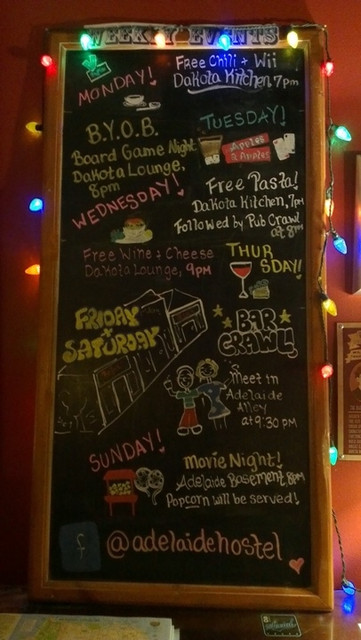 WEEKLY EVENTS
MONDAY!
Free Chili + Wii
Dakota Kitchen, 7pm
TUESDAY!
B.Y.O.B.
Board Game Night
Dakota Lounge,
8pm
Apples
2 Apples
WEDNESDAY!
Free Pasta!
Dakota Kitchen, 7pm
Followed by Pub Crawl
at 8pm
THUR
SDAY!
Free Wine + Cheese
Dakota Lounge, 9pm
FRIDAY
+
SATURDAY
BAR
CRAWL!
Meet in
Adelaide
Alley
at 9:30 PM
SUNDAY!
Movie Night!
Adelaide Basement, 8pm
Popcorn will be served!
f
@adelaidehostel